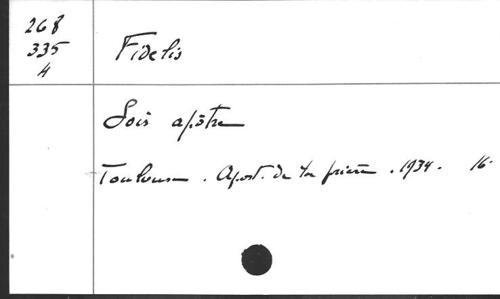 268
335
4
Fidelis
Sois apôtre
Toulouse . Apost. de la prière . 1934 . 16°